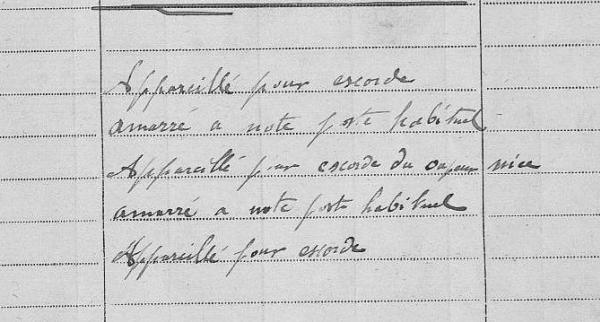 Appareillé pour escorde
amarré a note poste habituel
Appareillé pour escorde du vapeur nice
amarré a note poste habituel
Appareillé pour escorde